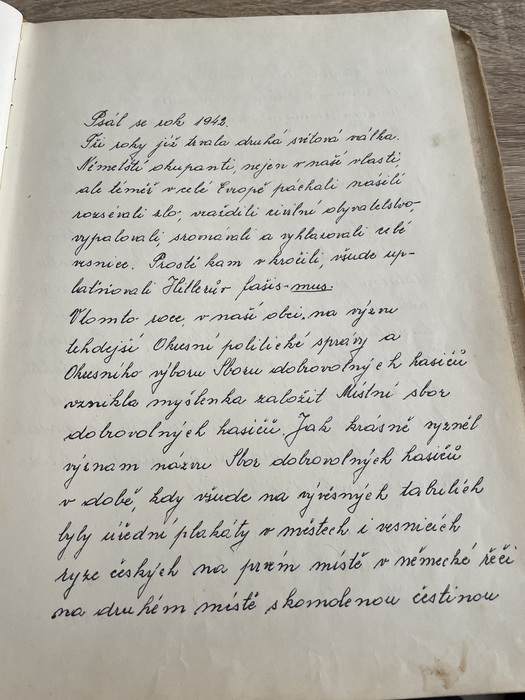 Psál se rok 1942.
Tři roky již trvala druhá světová válka.
Němečtí okupanti, nejen v naší vlasti,
ale téměř v celé Evropě páchali násilí
rozsévali zlo, vraždili civilní obyvatelstvo,
vypalovali, srovnávali a vyhlazovali celé
vesnice. Prostě kam vkročili, všude up-
latňovali Hitlerův fašis-mus.
V tomto roce, v naší obci, na výzvu
tehdejší Okresní politické správy a
Okresního výboru Sboru dobrovolných hasičů
vznikla myšlenka založit Místní sbor
dobrovolných hasičů. Jak krásně vyzněl
význam názvu Sbor dobrovolných hasičů
v době, kdy všude na vývěsných tabulích
byly úřední plakáty v městech i vesnicích
ryze českých na prvém místě v německé řeči
na druhém místě skomolenou češtinou